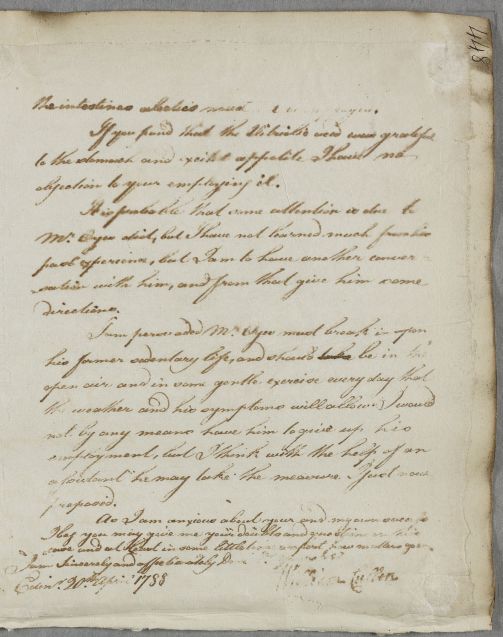 448
the intestines
If you find that the Nitrick acid was grateful
to the stomach and excited appetite I have no
objection to your employing it.
It is probable that some attention is due to
Mr. diet, but I have not learned much from his
past experience, but I am to have another conver
sation with him, and from that give him some
directions.
I am perswaded Mr. must break in upon
his former sedentary life, and should be in the
open air and in some gentle exercise every day that
the weather and his symptoms will allow. I would
not by any means have him to give up his
employment, but I think with the help of an
assistant he may take the measure I just now
proposed.
As I am anxious about your and my own
I beg you may give me your doubts and questions
and in some little
I am Sincerely and affectionately
Edinr. 20th April 1788 William Cullen